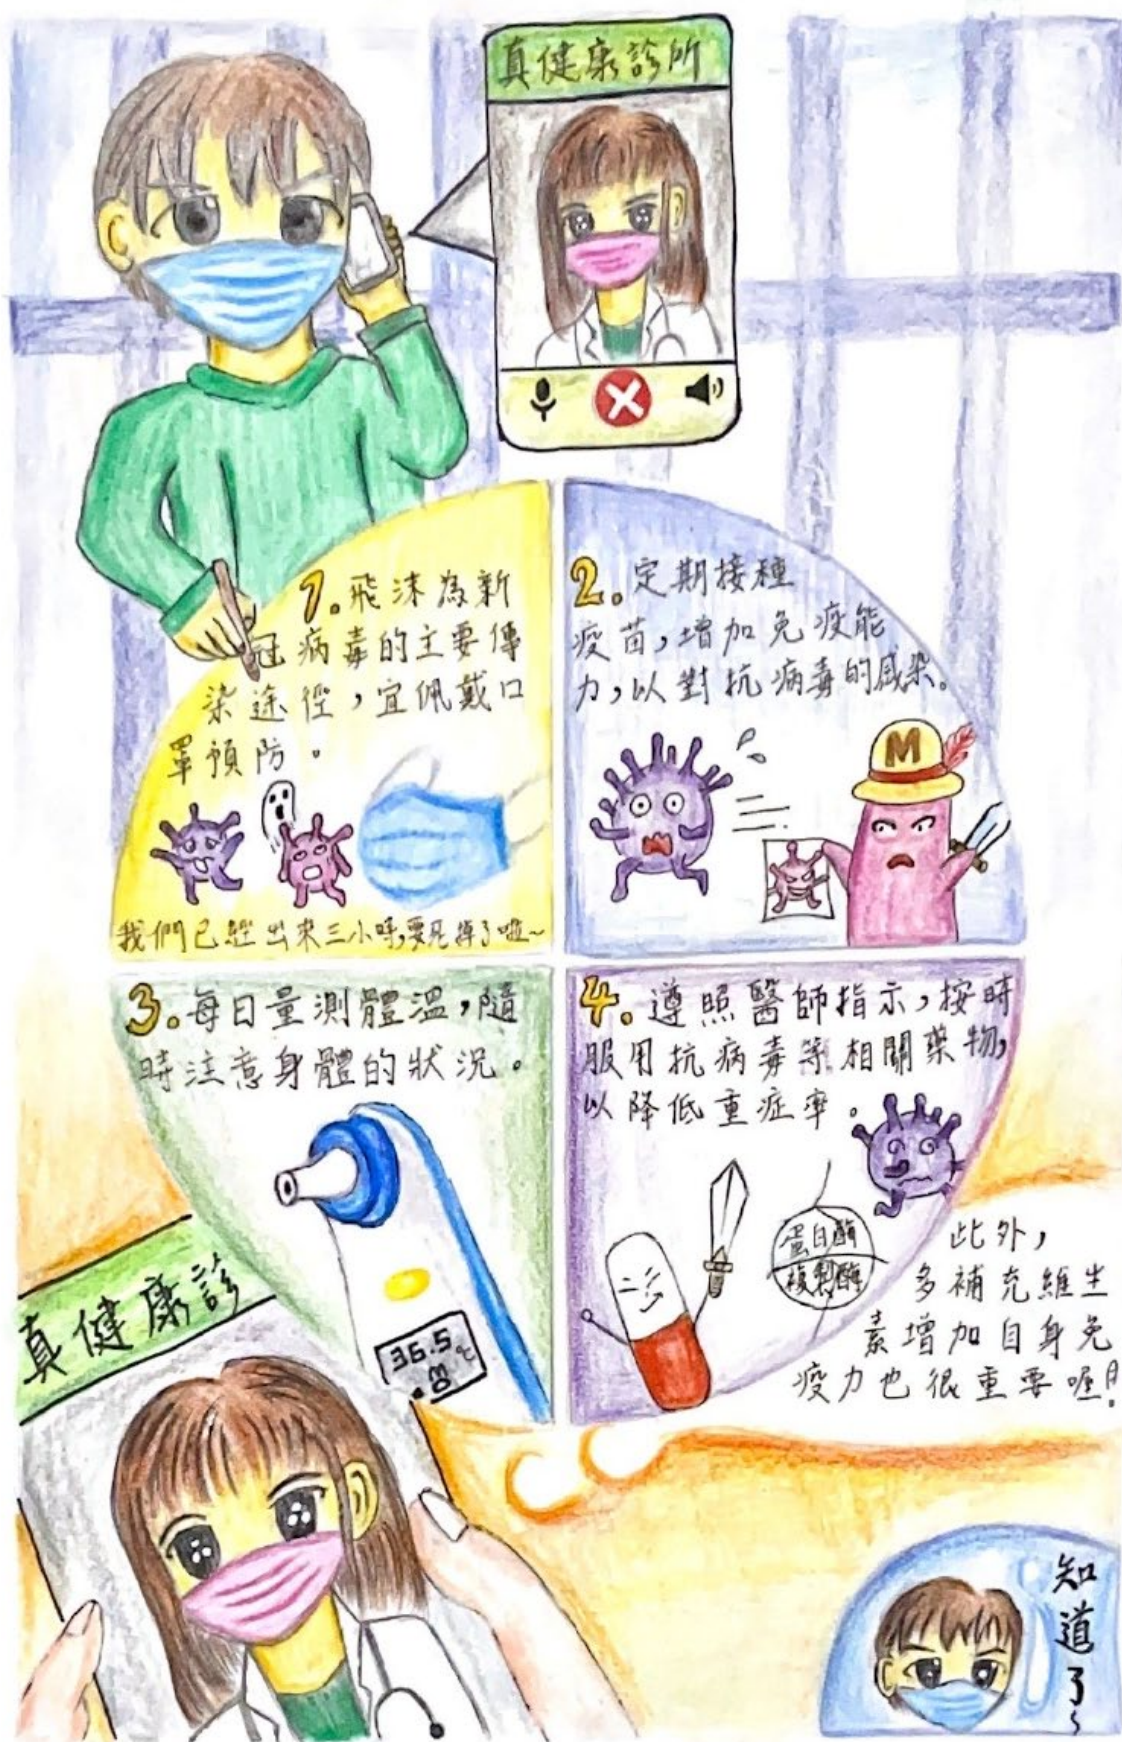 真健康診所
1.飛沫為新
冠病毒的主要傳
染途徑，宜佩戴口
罩預防。
我們已經出來三小時,要死掉了啦~
2.定期接種
疫苗,增加免疫能
力,以對抗病毒的感染。
M
3.每日量測體溫,隨
時注意身體的狀況。
36.5
℃
4.遵照醫師指示,按時
服用抗病毒等相關藥物,
以降低重症率。
蛋白酶
複製酶
此外,
多補充維生
素增加自身免
疫力也很重要喔!
真健康診
知道了~